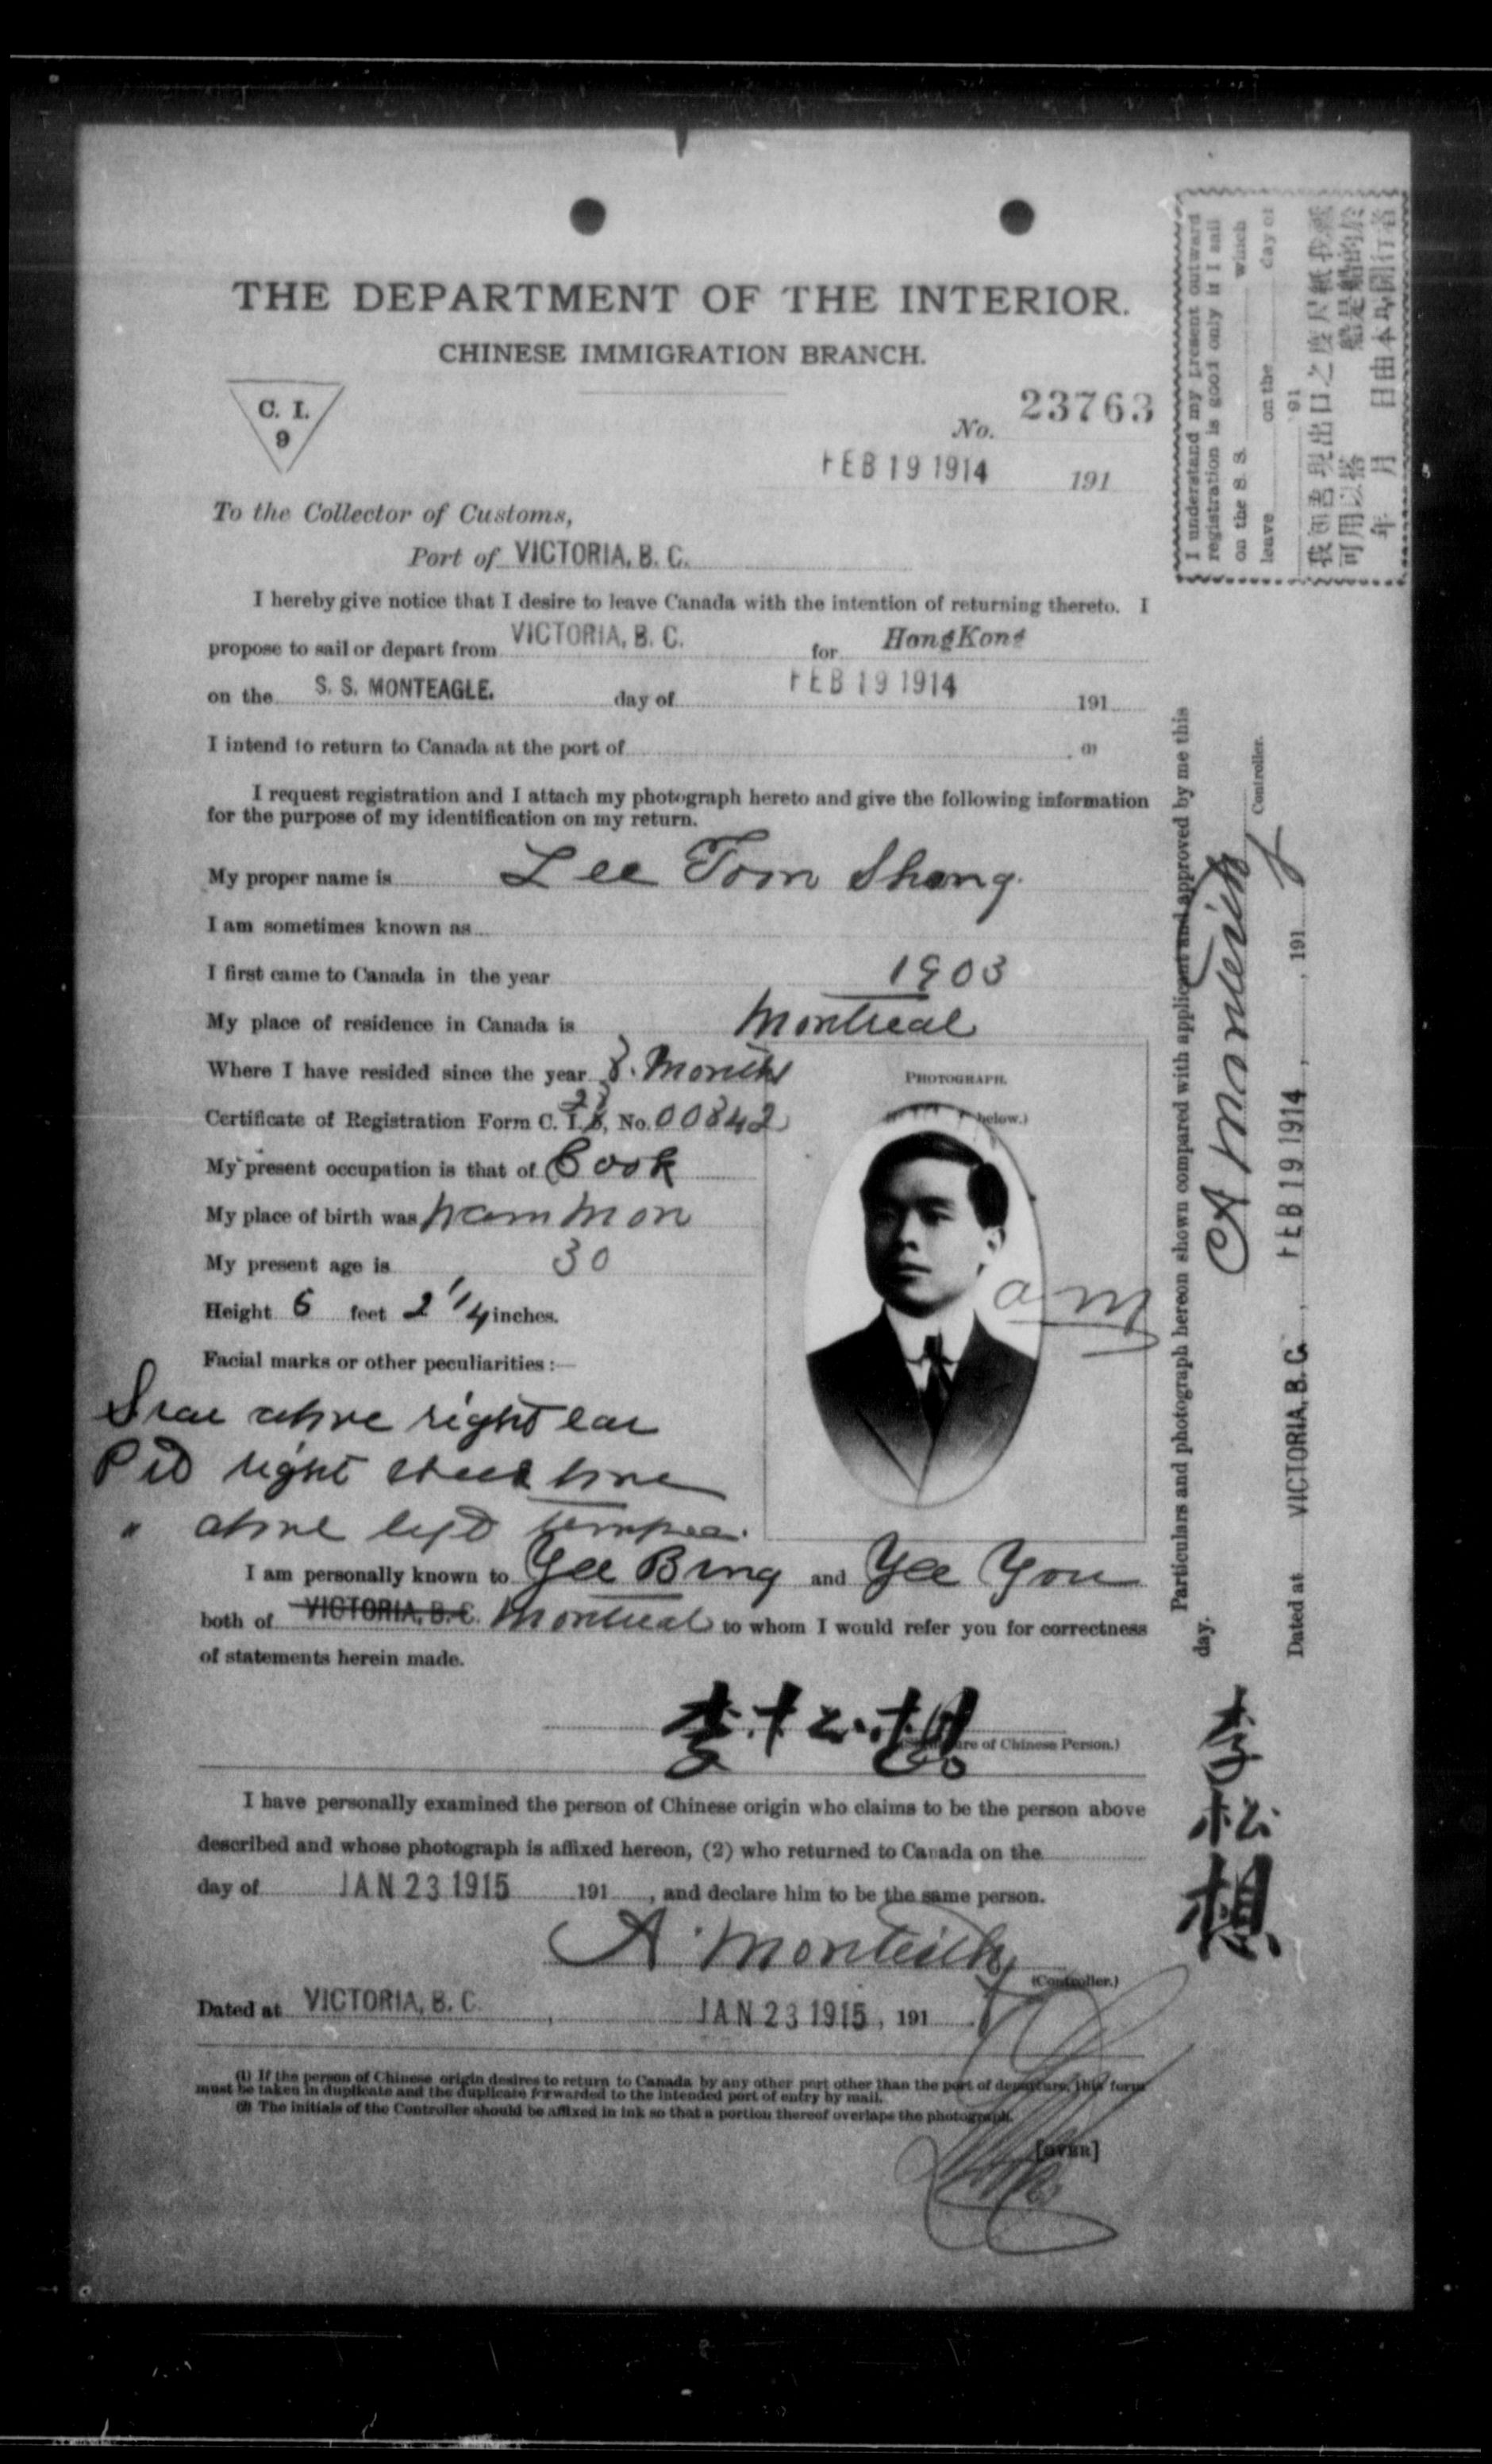 THE DEPARTMENT OF THE INTERIOR.
CHINESE IMMIGRATION BRANCH.
C. I.
9
No. 23763
FEB 19 1914 191
To the Collector of Customs,
Port of VICTORIA, B. C.
I hereby give notice that I desire to leave Canada with the intention of returning thereto. I
propose to sail or depart from VICTORIA, B. C. for HongKong
on the S. S. MONTEAGLE. day of FEB 19 1914 191
I intend to return to Canada at the port of (1)
I request registration and I attach my photograph hereto and give the following information
for the purpose of my identification on my return.
My proper name is Lee Toon Shong.
I am sometimes known as
I first came to Canada in the year 1903
My place of residence in Canada is Montreal
Where I have resided since the year 8. Months
Certificate of Registration Form C. I. 5, No. 00842
My present occupation is that of Cook
My place of birth was
My present age is 30
Height 5 feet 2 1/4 inches.
Facial marks or other peculiarities :—
Scar above right ear
Pit right cheek bone
" above left temple.
PHOTOGRAPH.
below.)
am
I am personally known to Yee Bing and Yee You
both of VICTORIA, B. C. Montreal to whom I would refer you for correctness
of statements herein made.
李松想
(Signature of Chinese Person.)
I have personally examined the person of Chinese origin who claims to be the person above
described and whose photograph is affixed hereon, (2) who returned to Canada on the
day of JAN 23 1915 191 , and declare him to be the same person.
A. Monteith
(Controller.)
Dated at VICTORIA, B. C. , JAN 23 1915 , 191
(1) If the person of Chinese origin desires to return to Canada by any other port other than the port of departure, this form
must be taken in duplicate and the duplicate forwarded to the intended port of entry by mail.
(2) The initials of the Controller should be affixed in ink so that a portion thereof overlaps the photograph.
[OVER]
I understand my present outward
registration is good only if I sail
on the S. S. which
leave on the day of
191
可用以搭
年 月 日由本
Particulars and photograph hereon shown compared with applicant and approved by me this
day.
A Monteith
Controller.
Dated at VICTORIA, B. C. , FEB 19 1914 , 191
李松想